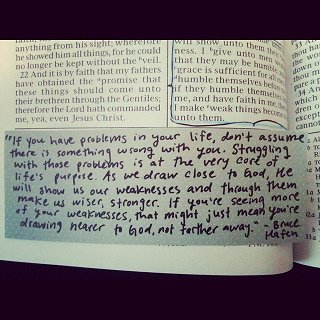 anything from his sight; wherefore
he showed him all things, for he could
no longer be kept without the veil.
22 And it is by faith that my fathers
have obtained the promise that
these things should come unto
their brethren through the Gentiles;
therefore the Lord hath commanded
me, yea, even Jesus Christ.
will show unto them their
ness. I give unto men weak
that they may be humble;
grace is sufficient for all
humble themselves before
if they humble themselves
me, and have faith in me, th
I make weak things become
unto them.
"If you have problems in your life, don't assume
there is something wrong with you. Struggling
with those problems is at the very core of
life's purpose. As we draw close to God, He
will show us our weaknesses and through them
make us wiser, stronger. If you're seeing more
of your weaknesses, that might just mean you're
drawing nearer to God, not farther away." - Bruce
Hafen